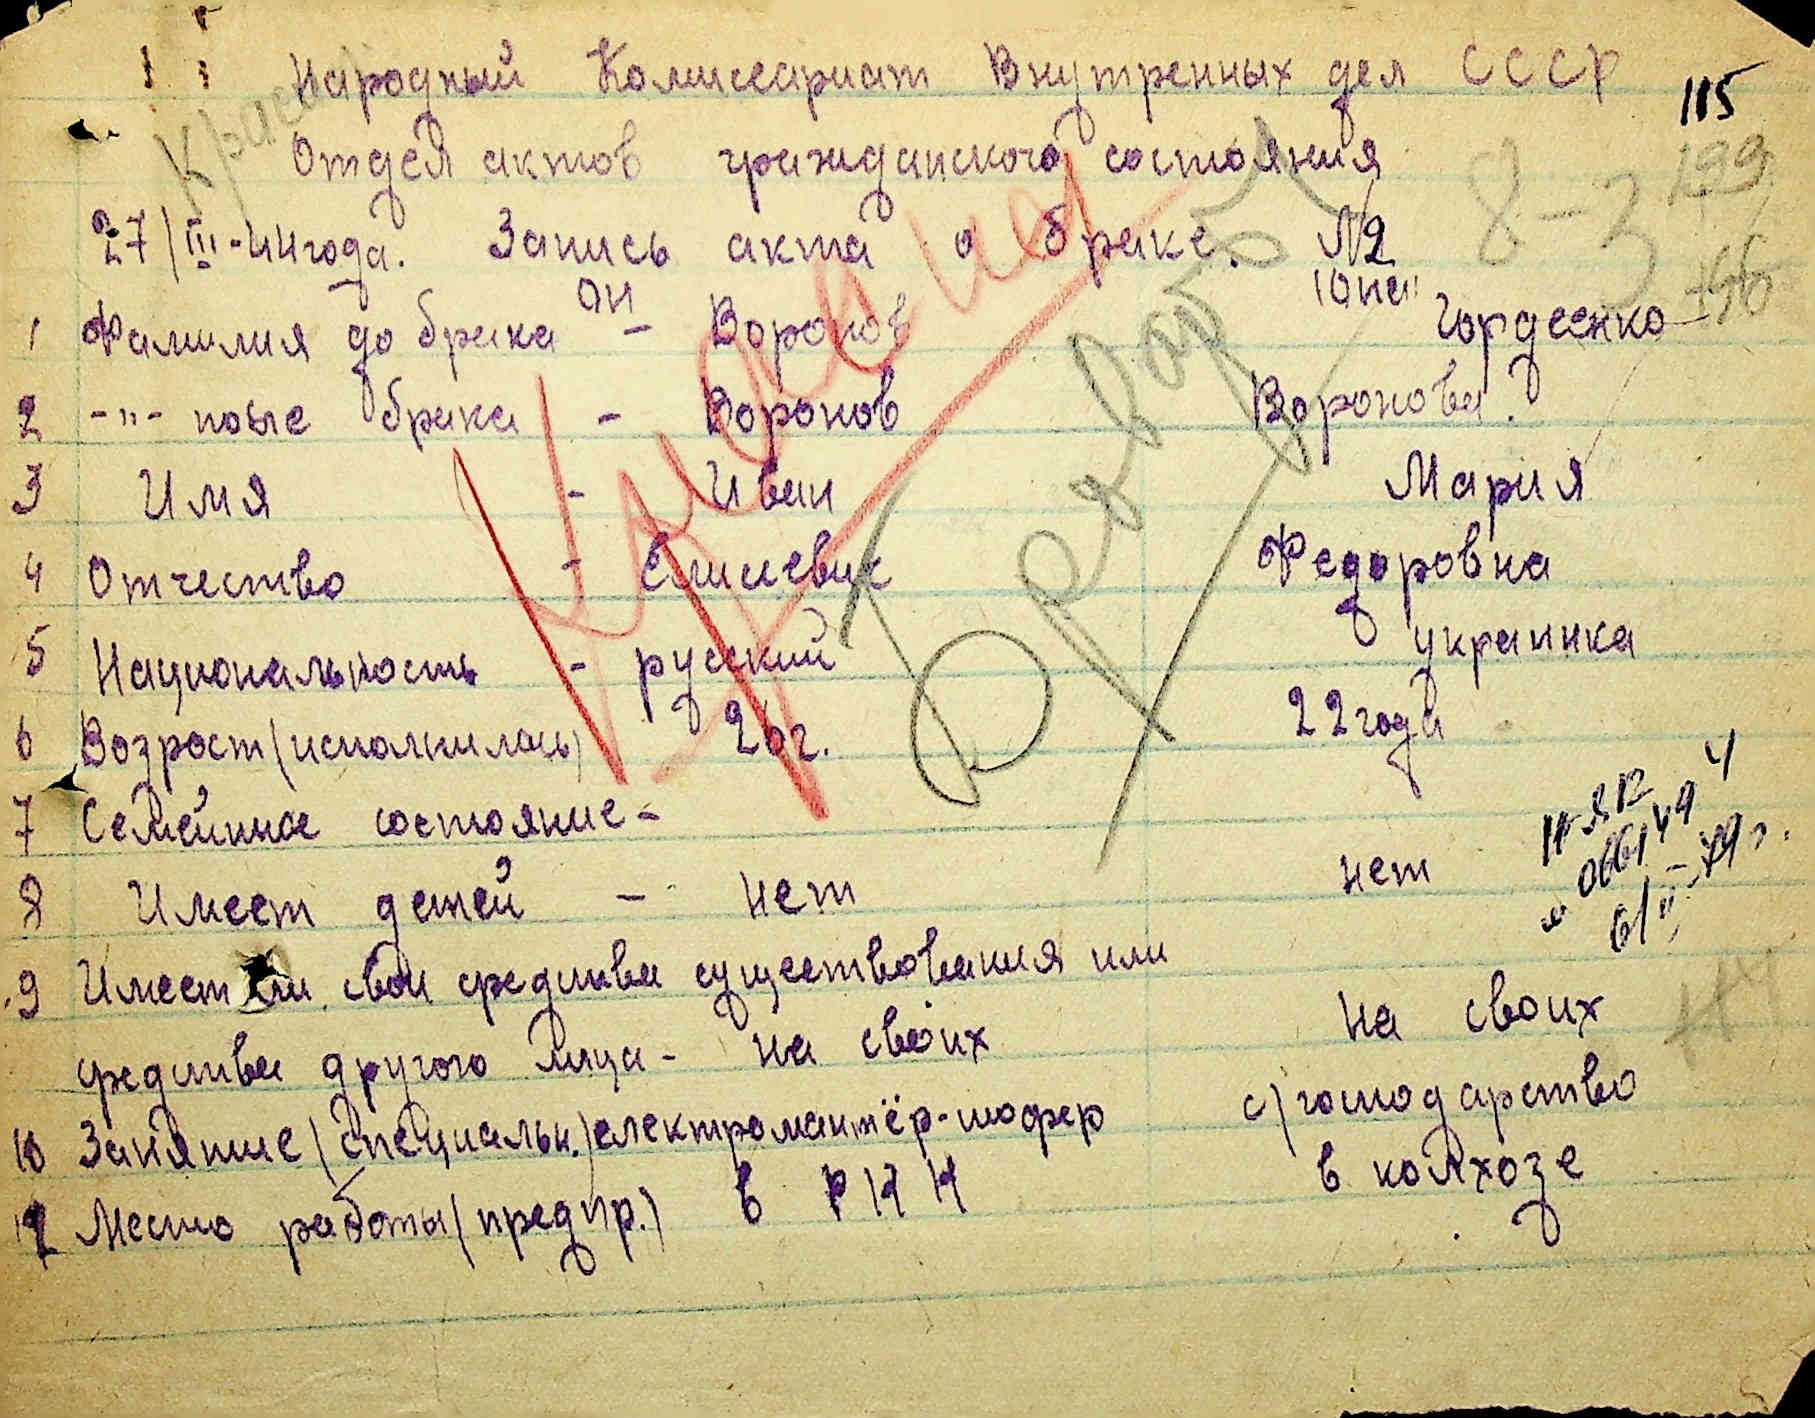 Народный Комиссариат Внутренных дел СССР
115
Отдел актов гражданского состояния
199
27/III-44 года. Запись акта о браке. N2
8-3
Он "Она"
1 Фамилия до брака - Воронов Гордеенко
2 -"- после брака - Воронов Воронова.
3 Имя - Иван Мария
4 Отчество - Федоровна
5 Национальность - русский украинка
6 Возрост (исполнилось) 26 г. 22 года
7 Семейное состояние -
8 Имеет детей - нет нет
9 Имеет ли свои средства существования или
средства другого лица - на своих на своих
10 Занятие (специальн.) електромантёр-шофер с) господарство
12 Место работы (предпр.) в РКК в колхозе